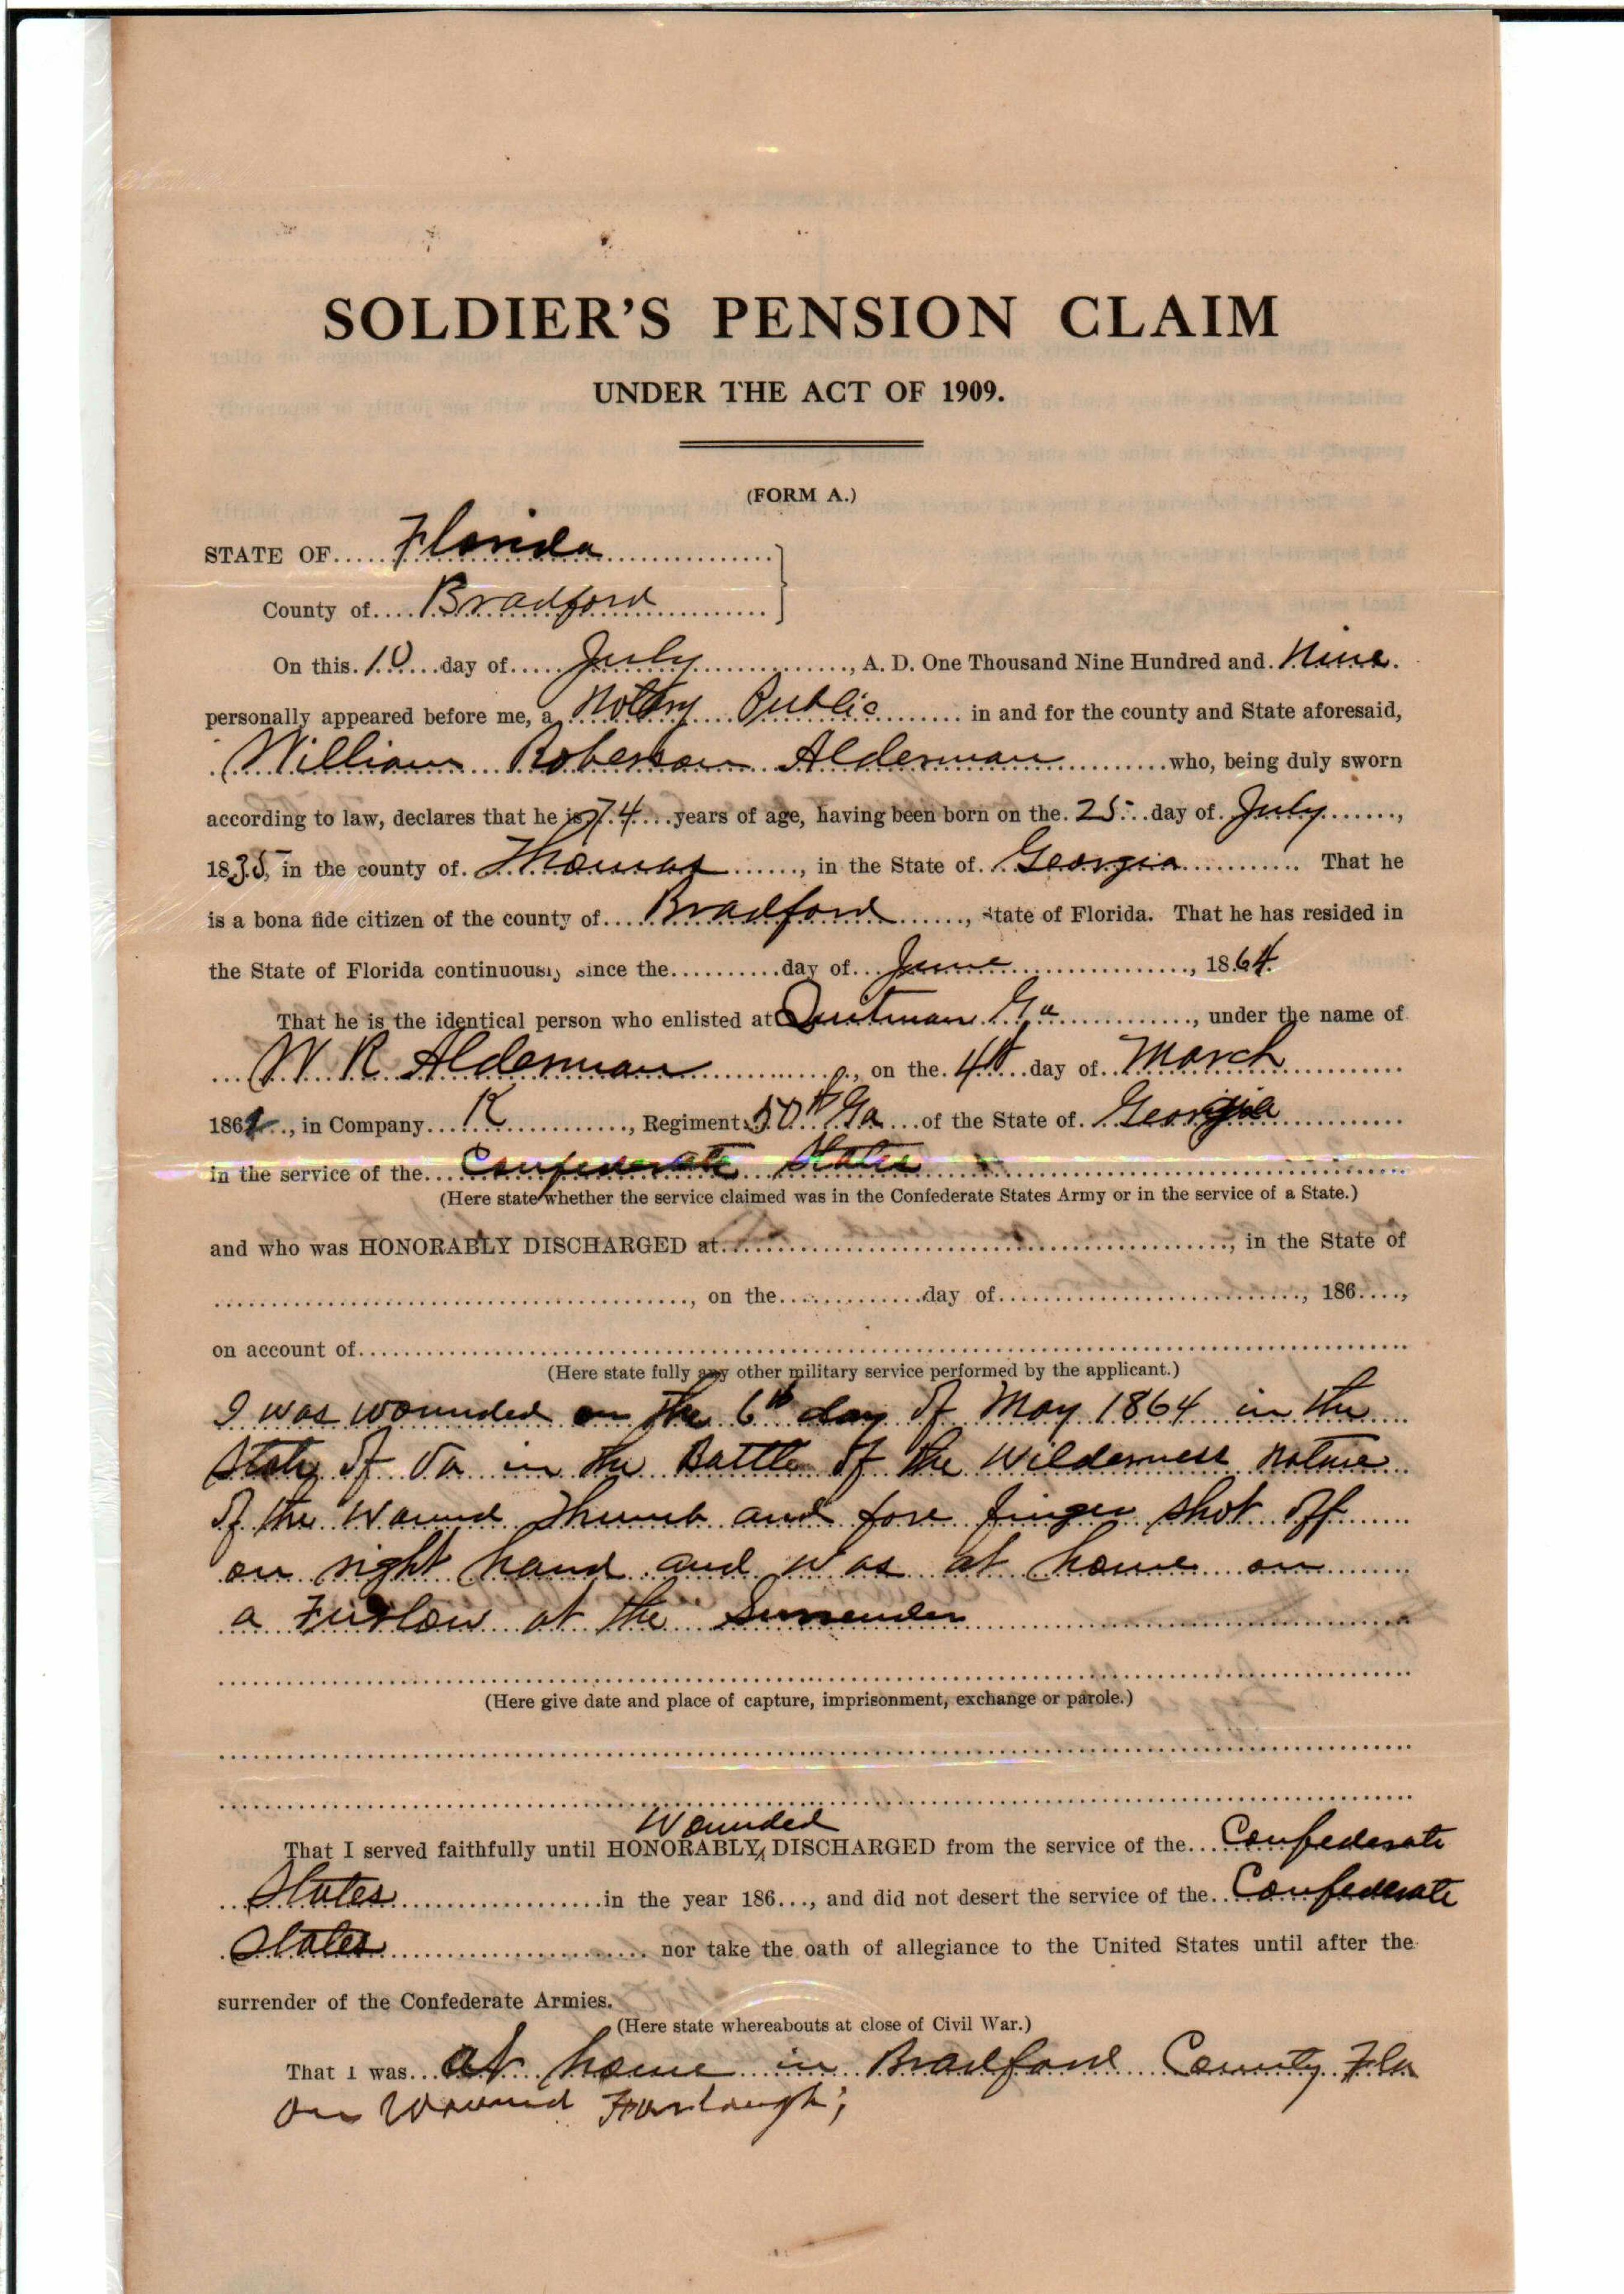 SOLDIER'S PENSION CLAIM
UNDER THE ACT OF 1909.
(FORM A.)
STATE OF Florida
County of Bradford
On this 10 day of July, A. D. One Thousand Nine Hundred and Nine.
personally appeared before me, a Notary Public in and for the county and State aforesaid,
William Roberson Alderman who, being duly sworn
according to law, declares that he is 74 years of age, having been born on the 25 day of July,
1835, in the county of Thomas, in the State of Georgia. That he
is a bona fide citizen of the county of Bradford, State of Florida. That he has resided in
the State of Florida continuously since the day of June, 1864
That he is the identical person who enlisted at Quitman Ga, under the name of
W R Alderman, on the 4th day of March
1862, in Company K, Regiment 50th Ga of the State of Georgia
in the service of the Confederate States
(Here state whether the service claimed was in the Confederate States Army or in the service of a State.)
and who was HONORABLY DISCHARGED at, in the State of
, on the day of, 186,
on account of
(Here state fully any other military service performed by the applicant.)
I was wounded on the 6th day of May 1864 in the
State of Va in the Battle of the Wilderness nature
of the Wound Thumb and fore finger shot off
on right hand and was at home on
a Furlow at the Surrender
(Here give date and place of capture, imprisonment, exchange or parole.)
Wounded
That I served faithfully until HONORABLY DISCHARGED from the service of the Confederate
States in the year 186, and did not desert the service of the Confederate
States nor take the oath of allegiance to the United States until after the
surrender of the Confederate Armies.
(Here state whereabouts at close of Civil War.)
That I was at home in Bradford County Fla
on Wound Fourlough;